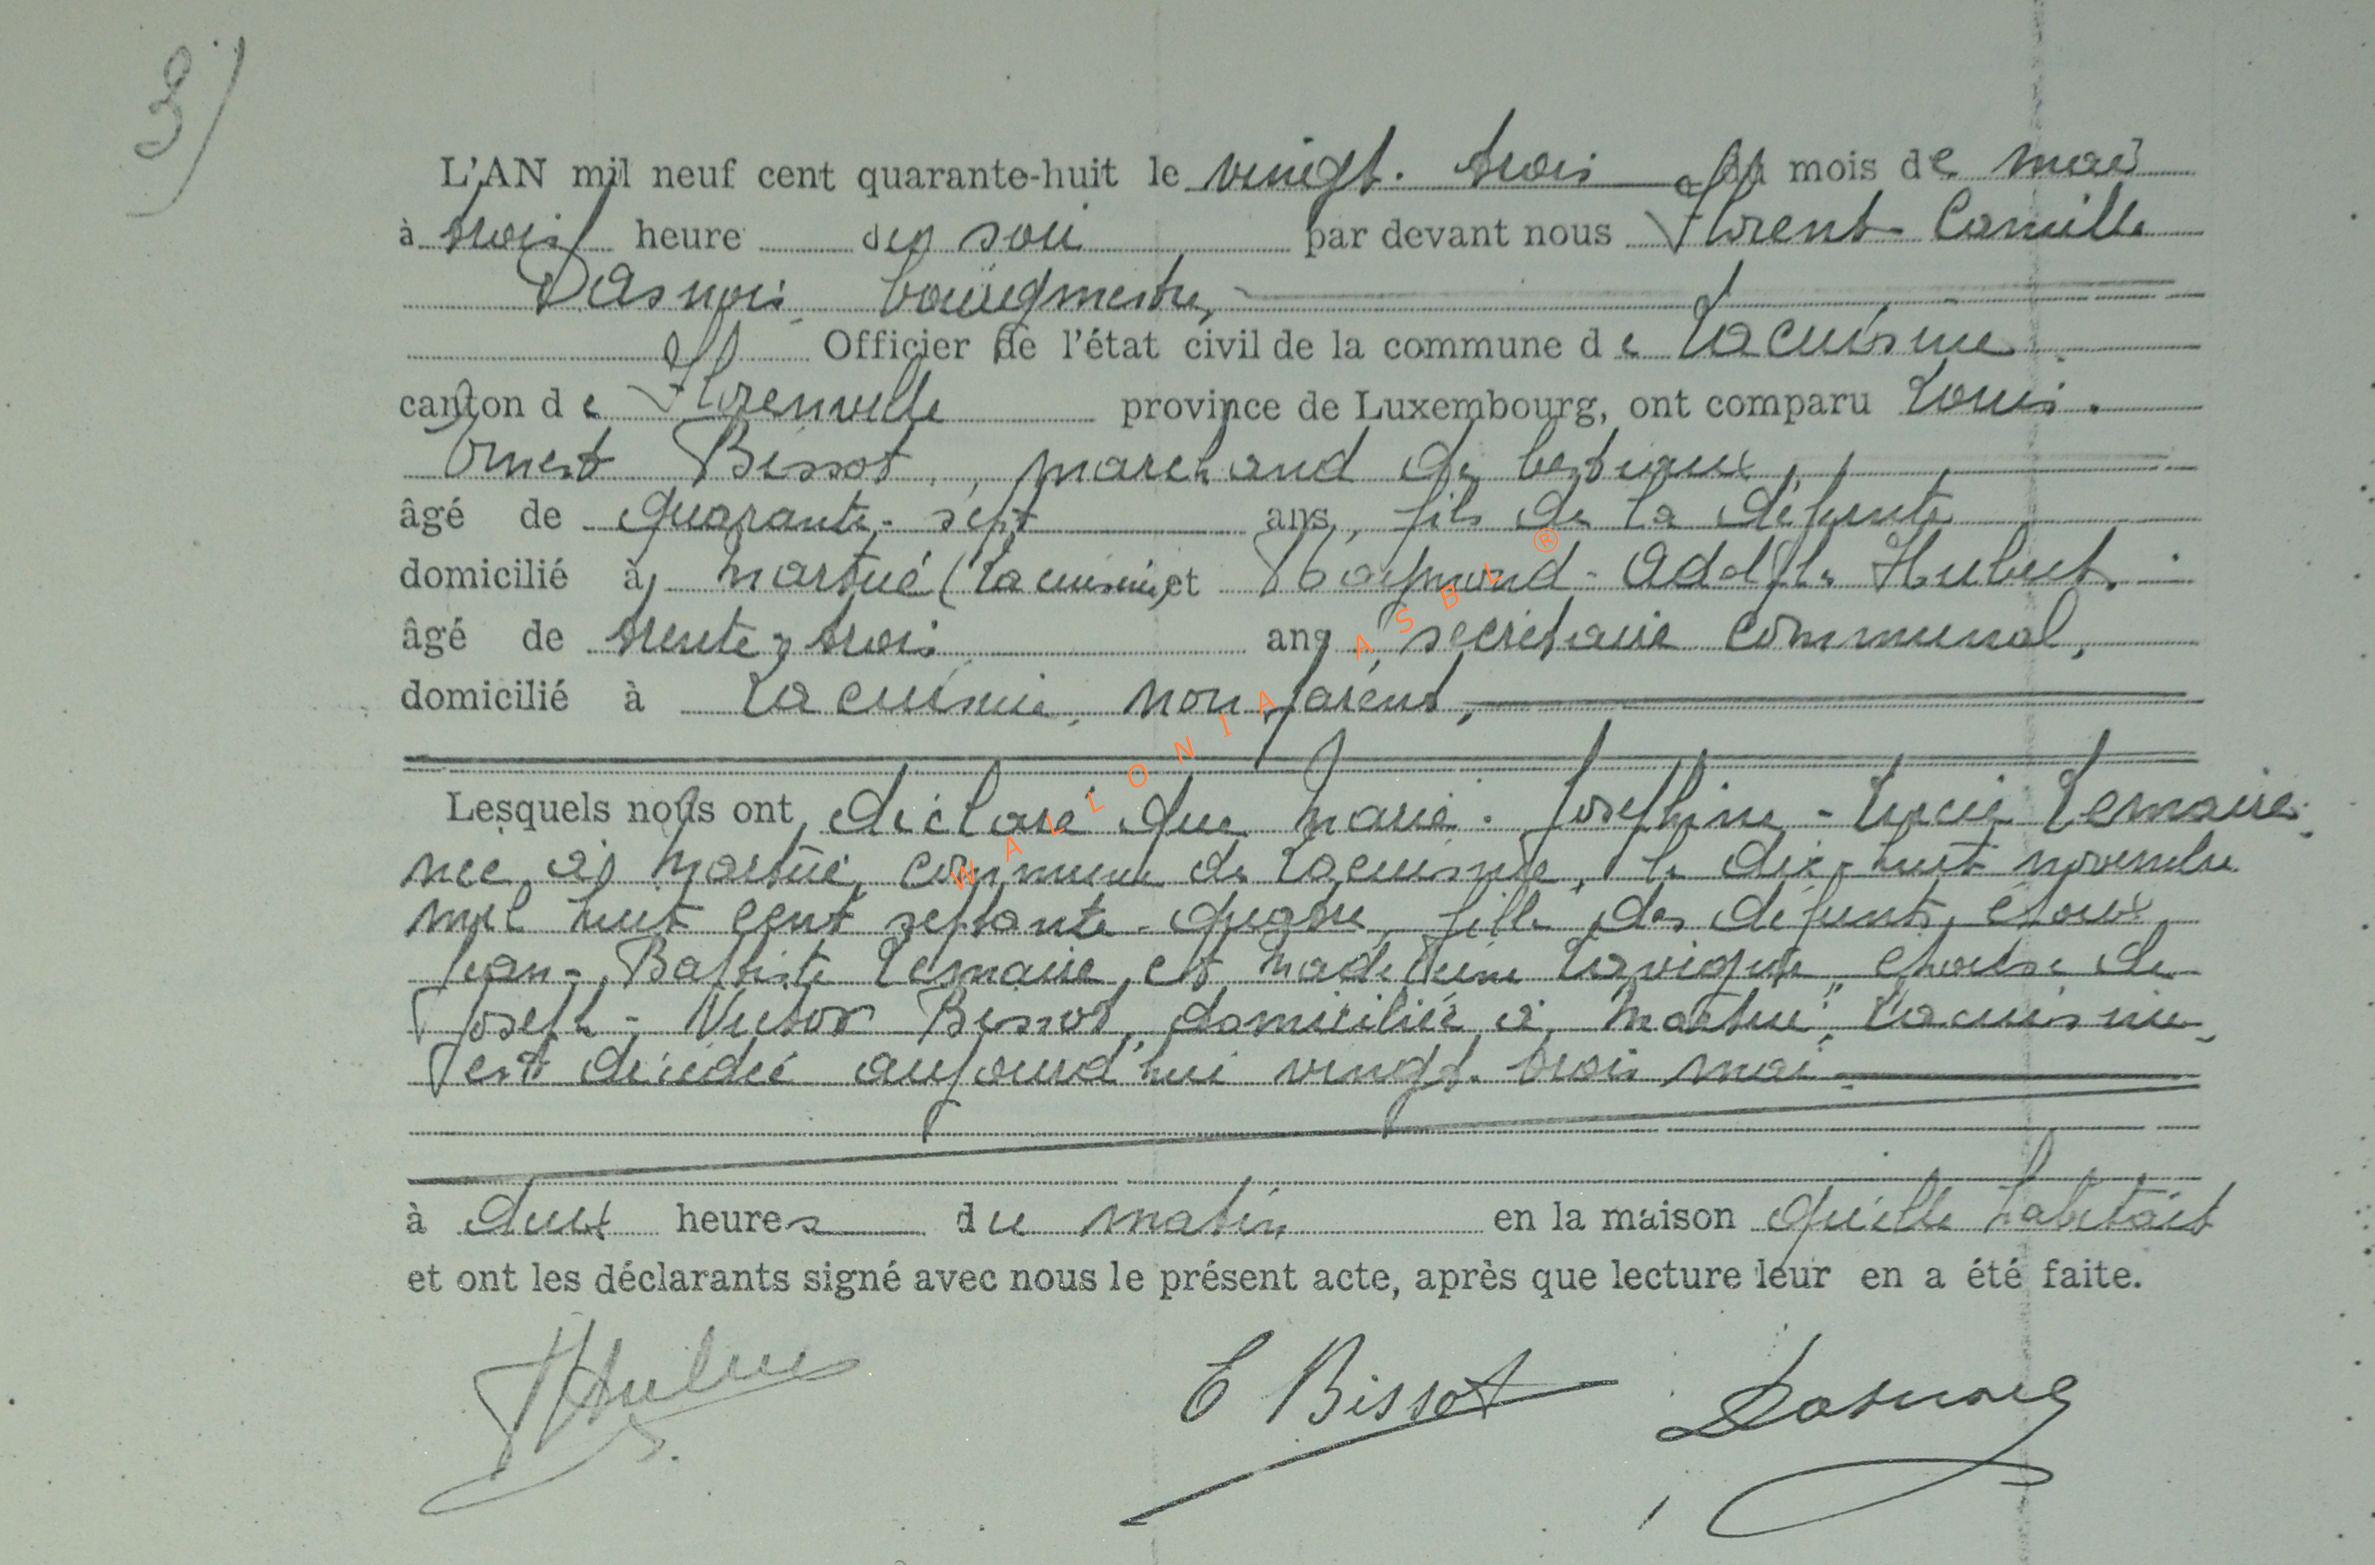 3)
L'AN mil neuf cent quarante-huit le vingt-trois du mois de mai
à trois heure du soir par devant nous Florent Camille
Dasnois, bourgmestre,
Officier de l'état civil de la commune de Lacuisine
canton de Florenville province de Luxembourg, ont comparu Louis-
Ernest Bissot, marchand de bestiaux,
âgé de quarante-sept ans, fils de la défunte
domicilié à Martué (Lacuisine) et Raymond-Adolphe Hubert,
âgé de trente-trois ans, secrétaire communal,
domicilié à Lacuisine, non parent,
Lesquels nous ont déclaré que Marie-Joséphine-Lucie Lemaire,
née à Martué, commune de Lacuisine, le dix-huit novembre
mil huit cent septante-quatre, fille des défunts époux
Jean-Baptiste Lemaire et Madeleine Lavigne, épouse de
Joseph-Victor Bissot, domiciliée à Martué, Lacuisine,
est décédée aujourd'hui vingt-trois mai
à deux heures du matin en la maison qu'elle habitait
et ont les déclarants signé avec nous le présent acte, après que lecture leur en a été faite.
E Bissot Dasnois
WALLONIA ASBL ®